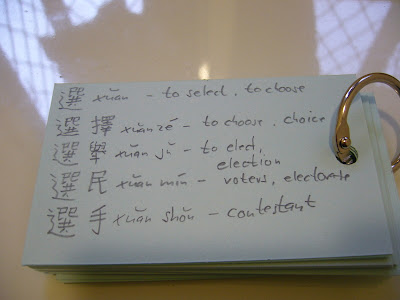 選 xuăn – to select, to choose
選擇 xuăn zé – to choose, choice
選舉 xuăn jŭ – to elect,
election
選民 xuăn mín – voters, electorate
選手 xuăn shŏu – contestant